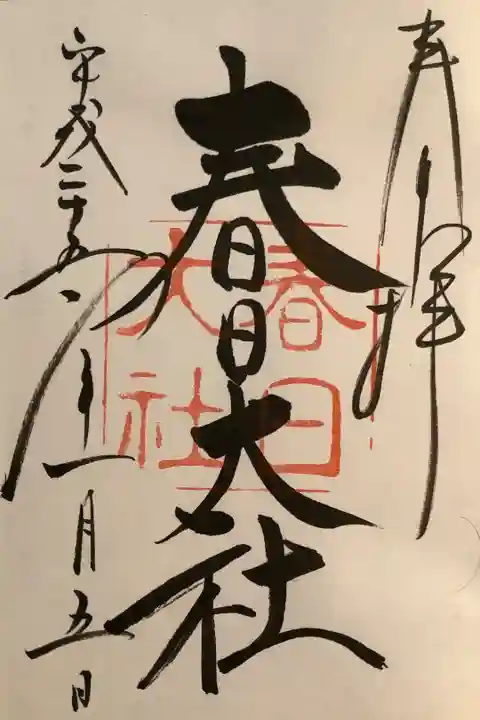 奉拝
春日大社
春日
大社
平成二十五年一月五日